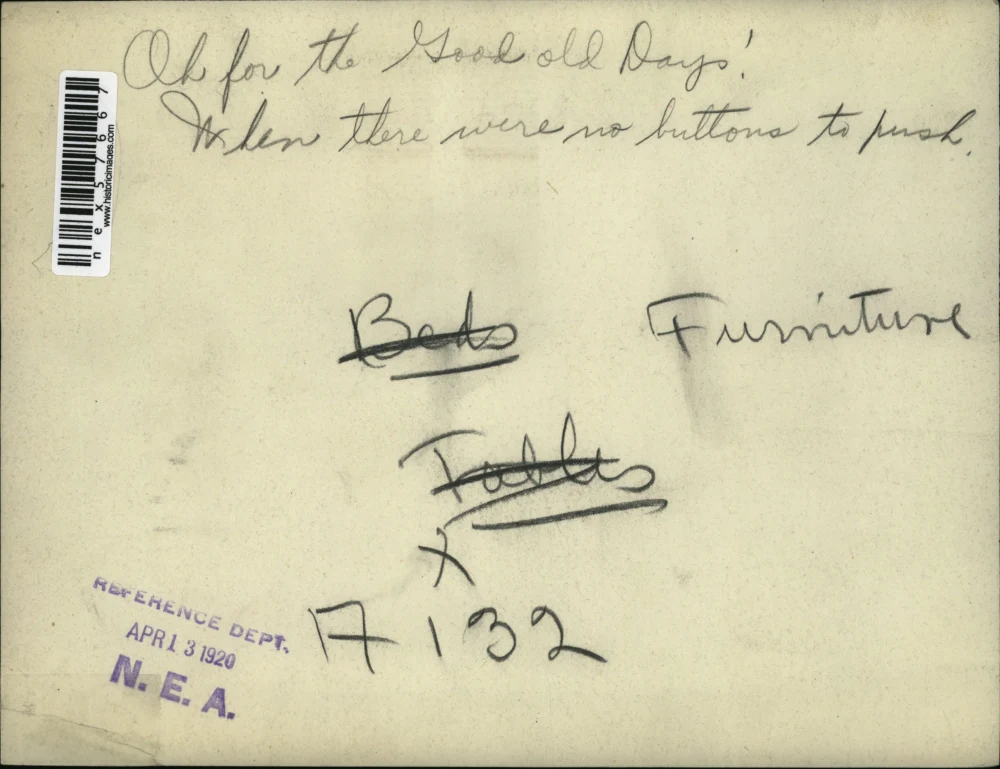 Oh for the Good old Days!
When there were no buttons to push.
nex57667
www.historicimages.com
Beds
Furniture
Tables
X
A132
REFERENCE DEPT.
APR 13 1920
N. E. A.